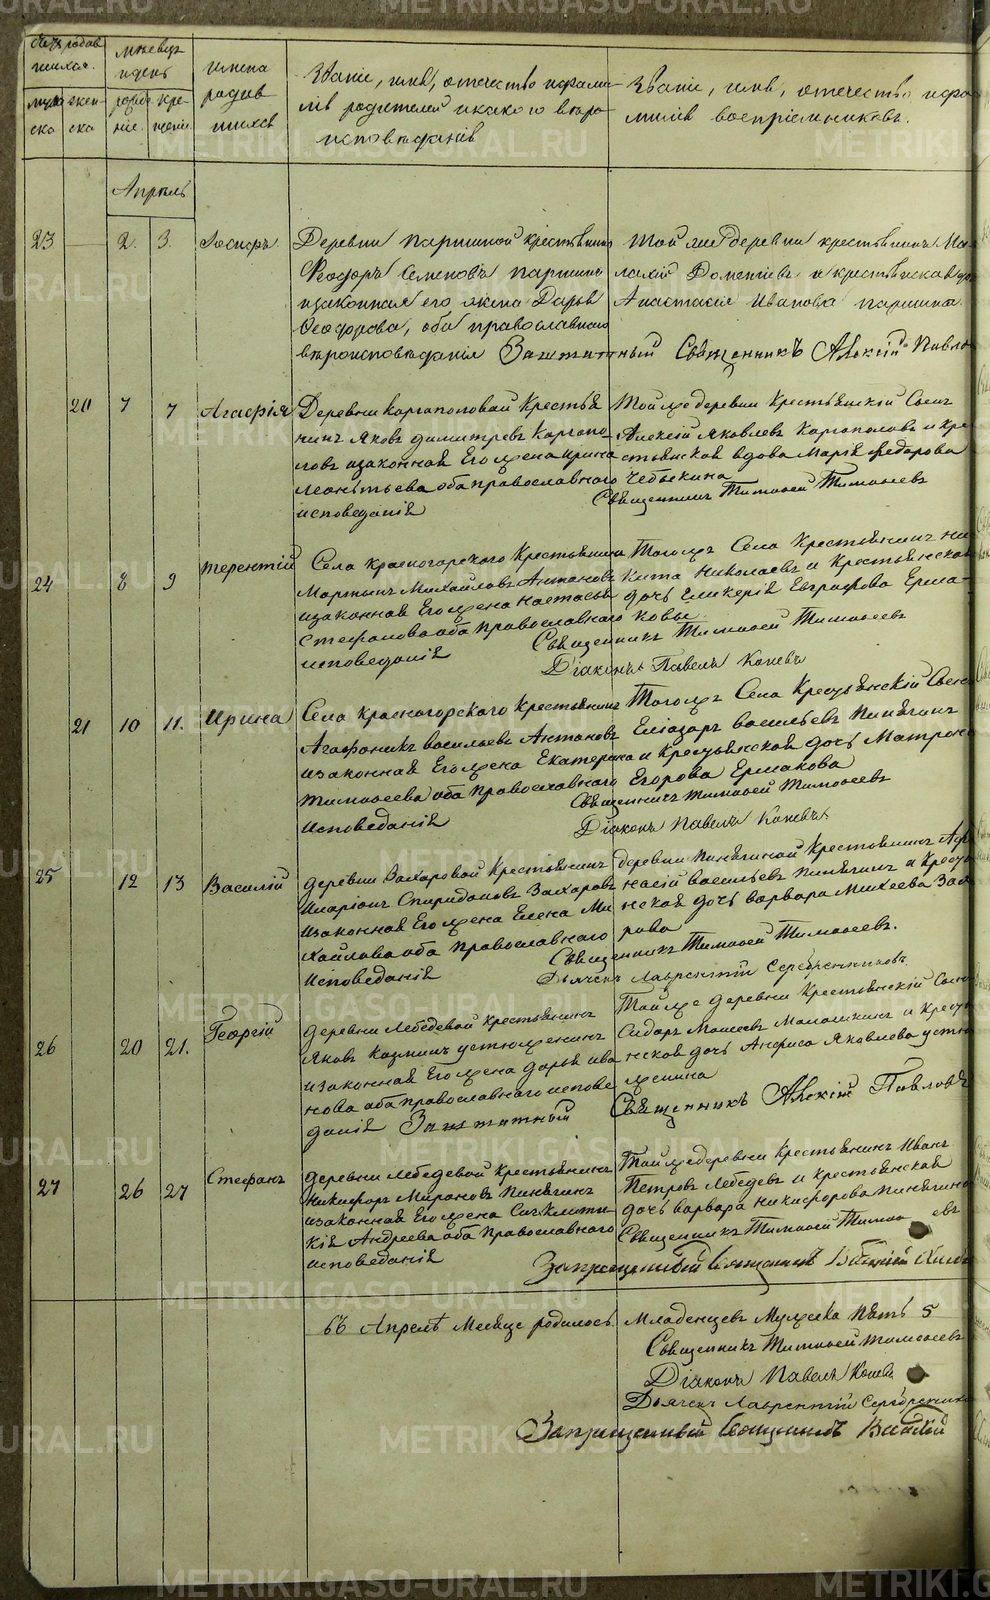 METRIKI.GASO-URAL.RU
Счетъ родившихся.
Мѣсяцъ и день
имена родившихся
Званіе, имя, отчество и фамилія родителей и какого вѣроисповѣданія
Званіе, имя, отчество и фамилія воспріемниковъ.
мужеска
женска
рожденіе.
крещенія.
Апрѣль
23 2. 3. Іосифъ
Деревни Паршиной крестьянинъ
Ѳеодоръ Семеновъ Паршинъ
и законная его жена Дарья
Ѳеодорова, оба православнаго
вѣроисповѣданія
Той же деревни крестьянинъ
Дометіевъ и крестьянская
Анастасія Иванова Паршина.
Заштатный Священникъ Алексій Павло
20 7 7 Агафія
Деревни Каргаполовай Крестья
нинъ Яковъ Димитревъ Каргапо
ловъ и законная Его жена Ирина
Леонтьева оба православнаго
исповеданія
Той же деревни Крестьянскій Сынъ
Алексій Яковлевъ Каргаполовъ и кре
стьянская вдова Марія Федорова
Чебыкина
Священникъ Тимоѳей Тимоѳеевъ
24 8 9 Терентій
Села Красногорского Крестьянинъ
Мартынъ Михайловъ Антановъ
и законная Его жена Настасья
Стефанова оба православнаго
исповеданія
Тогожъ Села Крестьянинъ Ни
кита Николаевъ и Крестьянская
дочь Гликерія Евграфова Ерма
ковы
Священникъ Тимоѳей Тимоѳеевъ
Діаконъ Павелъ Коневъ
21 10 11. Ирина
Села Красногорского Крестьянинъ
Агафоникъ Васильевъ Антановъ
и законная Его жена Екатерина
Тимоѳеева оба православнаго
исповеданія
Тогожъ Села Крестьянскій Сынъ
Еліазаръ Васильевъ Пинягинъ
и Крестьянская дочь Матрона
Егорова Ермакова
Священникъ Тимоѳей Тимоѳеевъ
Діаконъ Павелъ Коневъ
25 12 13 Василій
Деревни Захаровой Крестьянинъ
Иларіонъ Спиридоновъ Захаровъ
и законная Его жена Елена Ми
хайлова оба православнаго
исповеданія
деревни Пинягиной Крестьянинъ Афа
насій Васильевъ Пинягинъ и Крестья
нская дочь Варвара Михеева Заха
рова
Священникъ Тимоѳей Тимоѳеевъ.
Дьячекъ Лаврентій Серебренниковъ
26 20 21. Георгій
Деревни Лебедевой Крестьянинъ
Яковъ Козминъ Устюженинъ
и законная Его жена Дарья Ива
нова оба православнаго испове
данія
Той же деревни Крестьянскій Сынъ
Сидоръ Моисеевъ и Крестья
нская дочь Анфиса Яковлева Устю
женина
Заштатный Священникъ Алексій Павловъ
27 26 27 Стефанъ
Деревни Лебедевой Крестьянинъ
Никифоръ Мироновъ Пинягинъ
и законная Его жена Синклити
кія Андреева оба Православнаго
исповеданія
Той же деревни Крестьянинъ Иванъ
Петровъ Лебедевъ и Крестьянская
дочь Варвара Никифорова Пинягина
Священникъ Тимоѳей Тимоѳеевъ
Запрещенный Священникъ
въ Апреле Месяце родилось Младенцевъ Мужеска Пять 5
Священникъ Тимоѳей Тимоѳеевъ
Діаконъ Павелъ Коневъ
Дьячекъ Лаврентій Серебренников
Запрещенный Священникъ